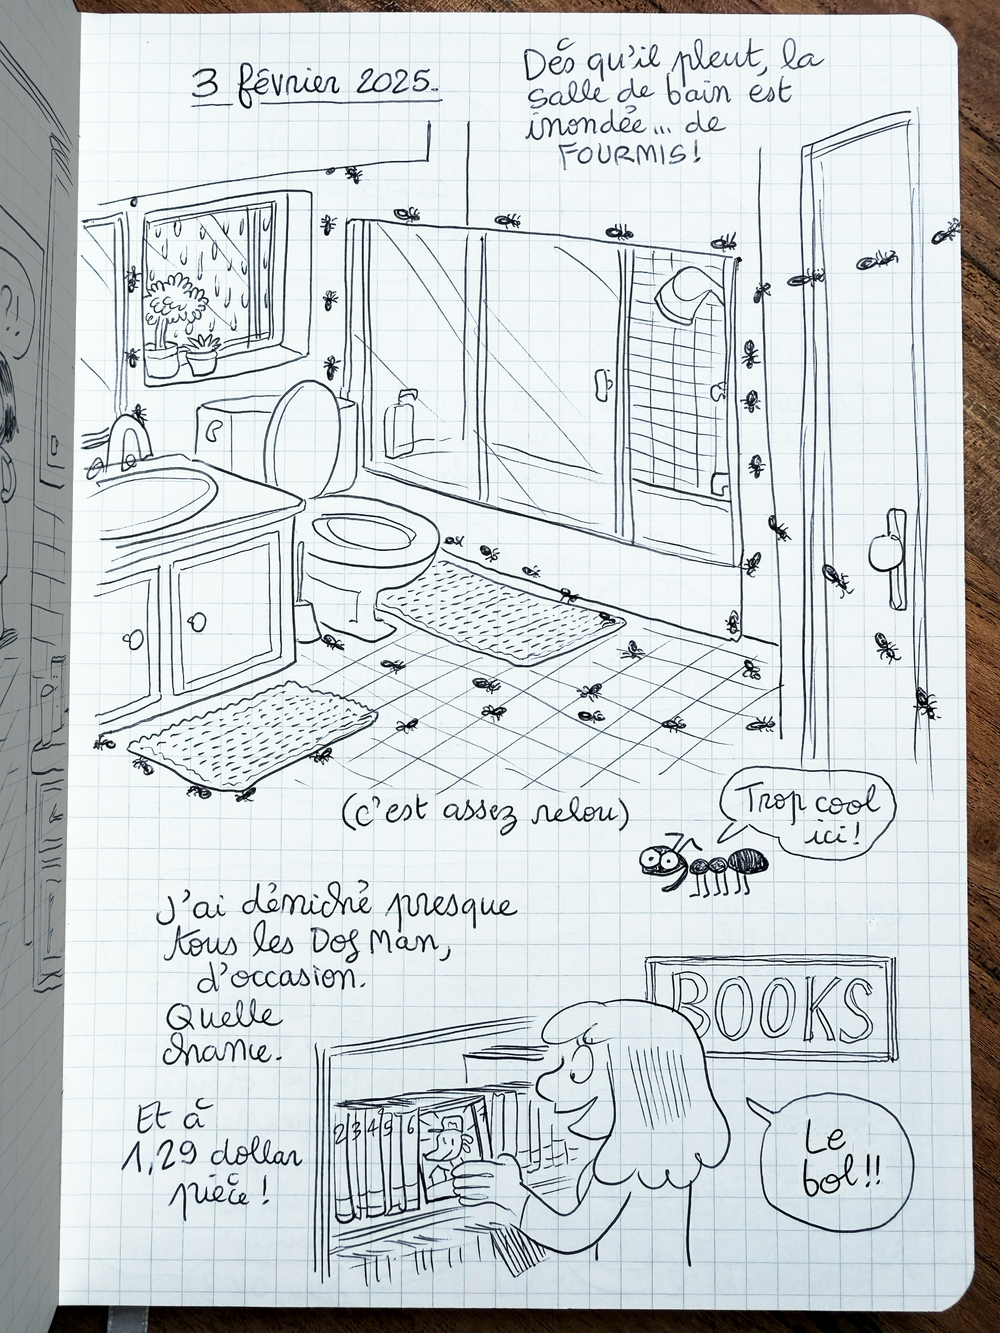 3 février 2025.
Dès qu'il pleut, la
salle de bain est
inondée... de
FOURMIS!
(c'est assez relou)
Trop cool
ici!
J'ai déniché presque
tous les Dog Man,
d'occasion.
Quelle
chance.
BOOKS
2 3 4 5 6
Et à
1,29 dollar
pièce!
Le
bol!!